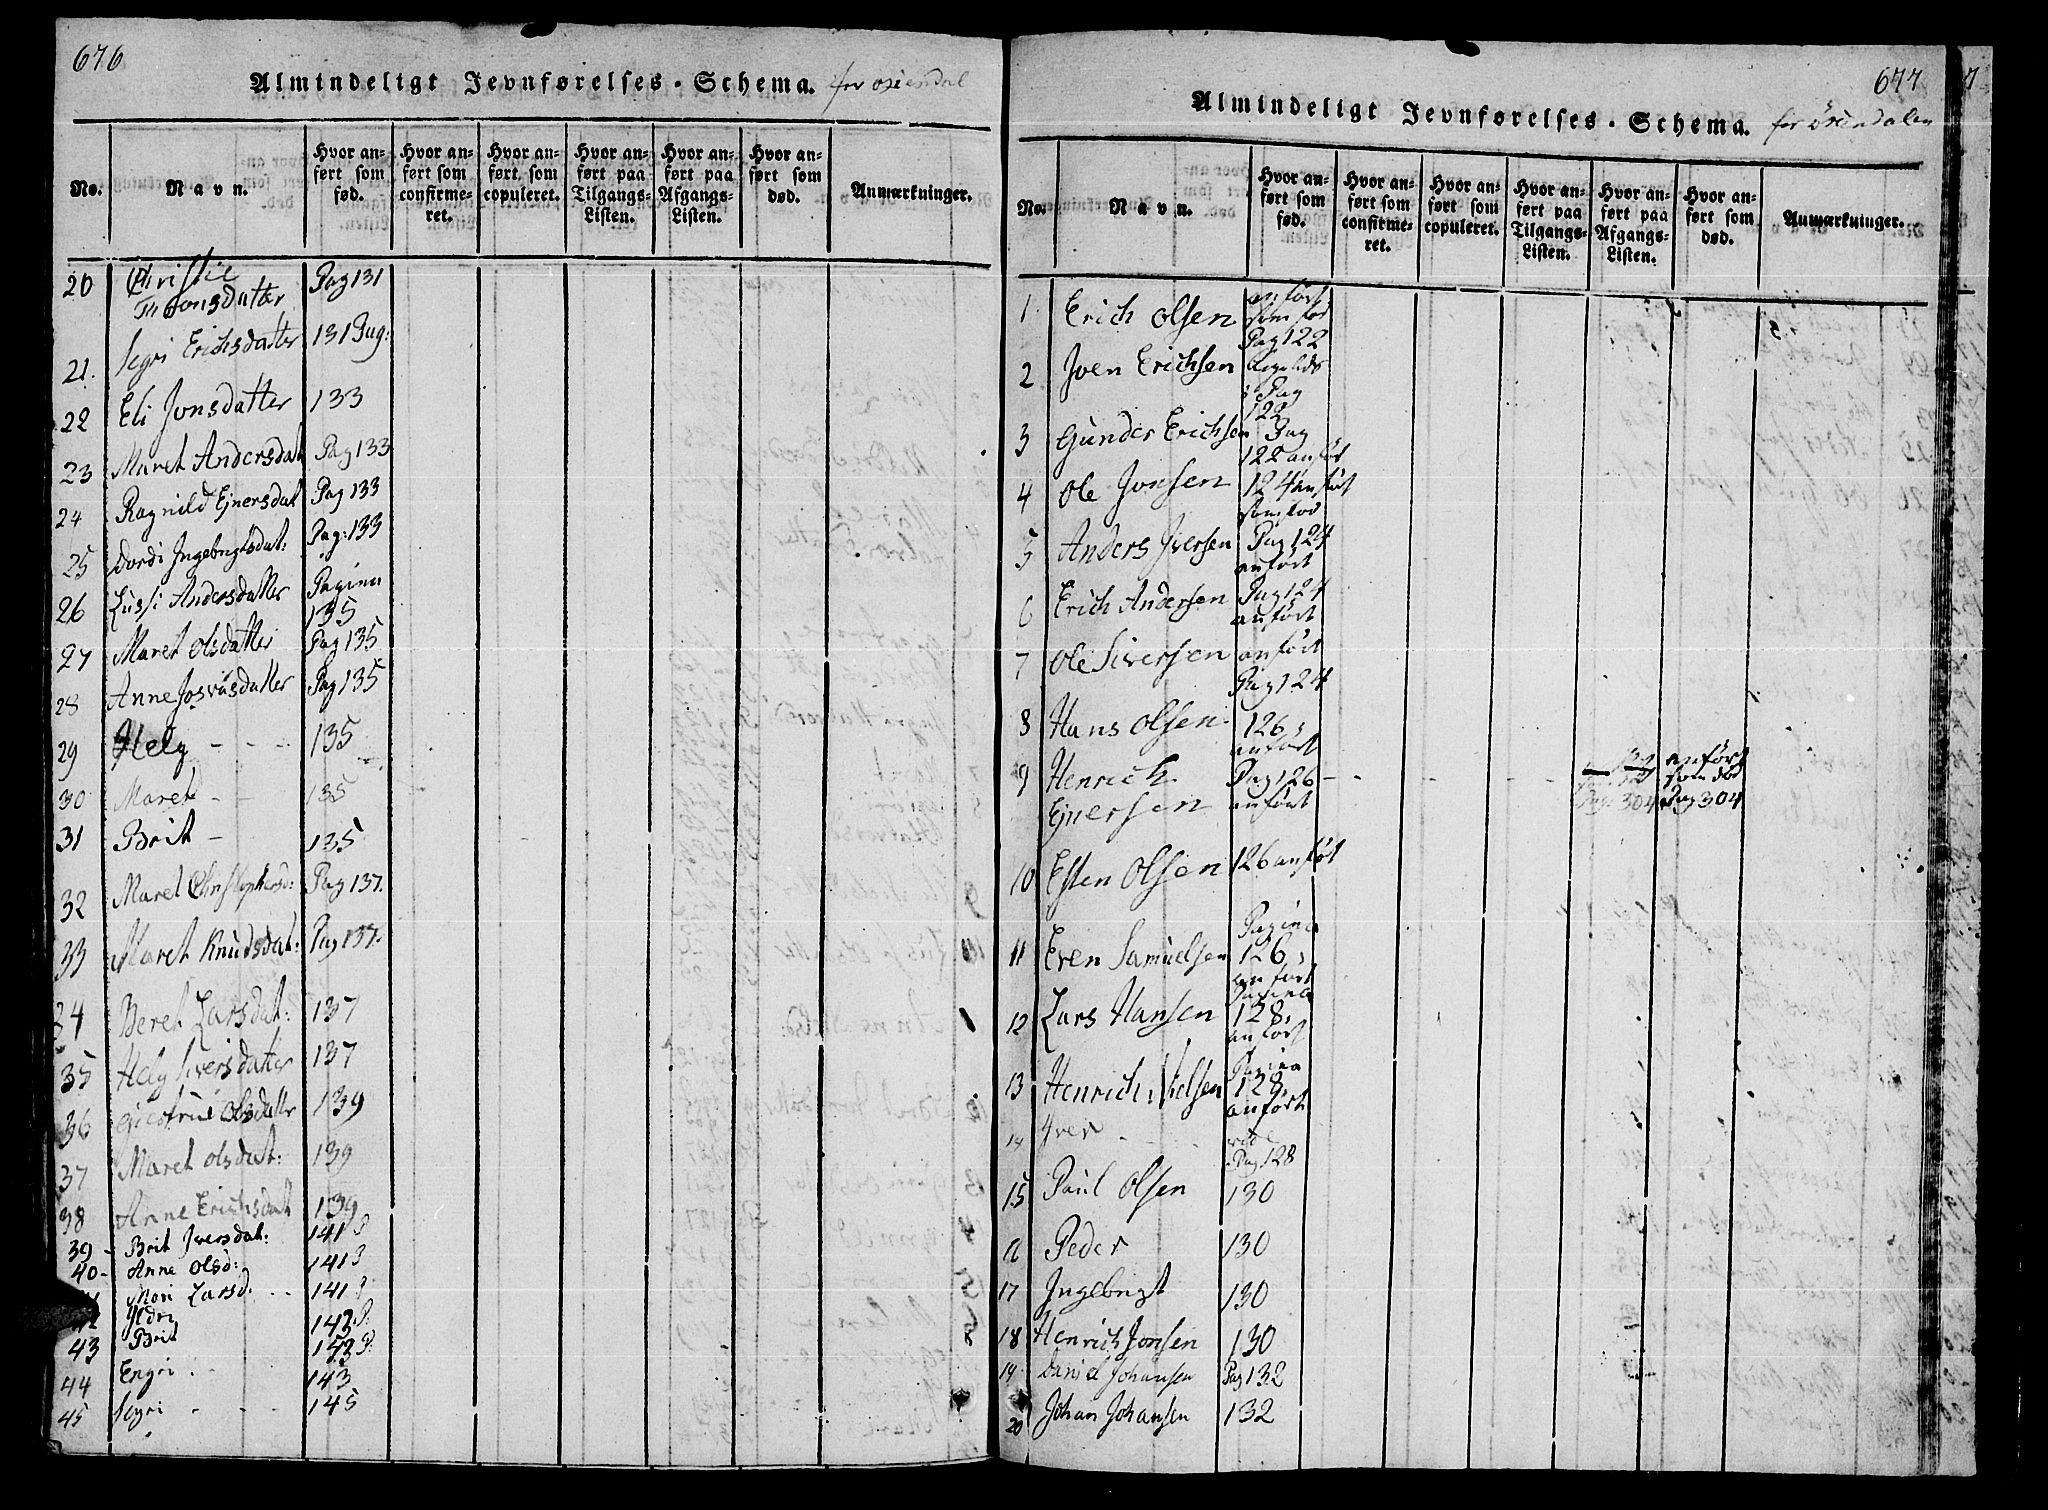 676
Almindeligt Jevnførelses-Schema. for øxendal
No.
Navn.
Hvor an-
ført som
fød.
Hvor an-
ført som
confirme-
ret.
Hvor an-
ført som
copuleret.
Hvor an-
ført paa
Tilgangs-
Listen.
Hvor an-
ført paa
Afgangs-
Listen.
Hvor an-
ført som
død.
Anmærkninger.
20 Christie Pag 131
Thronsdatter
21. Segri Erichsdatter 131 Pag:
22 Eli Jonsdatter 133
23 Maret Andersdat Pag 133
24 Ragnild Ejnersdat Pag 133
25 Dordi Ingebrigtsdat: Pag: 133
26 Lussi Andersdatter Pagina
135
27 Maret Olsdatter Pag 135
28 Anne Josvasdatter Pag 135
29 Hely - - - 135
30 Maret - - 135
31 Brit - 135
32 Maret Christophersd: Pag 137.
33 Maret Knudsdat: Pag 137.
34 Beret Larsdat: 137
35 Hely Siversdatter 137
36 Olsdatter 139
37 Maret Olsdat: 139
38 Anne Erichsdat 139
39 - Brit Iversdat: 141 P
40 - Anne Olsd: 141 P
Mari Larsd. - - 141 P
142 P.
43 Brit 143 P.
44 Engri . - 143
45 Segri - - - 145
677
Almindeligt Jevnførelses-Schema. for Öxendalen
No.
Navn.
Hvor an-
ført som
fød.
Hvor an-
ført som
confirme-
ret.
Hvor an-
ført som
copuleret.
Hvor an-
ført paa
Tilgangs-
Listen.
Hvor an-
ført paa
Afgangs-
Listen.
Hvor an-
ført som
død.
Anmærkninger.
1 Erich Olsen anført
som fød
Pag 122
2 Joen Erichsen
i Pag
122
3 Gunder Erichsen Pag
122 anført
4 Ole Jonsen 124 anført
som fød
5 Anders Iversen Pag 124
anført
6 Erich Andersen Pag 124
anført
7 Ole Siversen anført
Pag 124
8 Hans Olsen 126,
anført
9 Henrich Pag 126 - - - - anført
som død
Ejnersen anført Pag: 304 Pag 304
10 Esten Olsen 126 anført
11 Even Samuelsen Pagina
126,
anført
12 Lars Hansen Pagina
128,
anført
13 Henrich Nielsen Pagina
128,
anført
14 Iver - - - vide
Pag 128
15 Paul Olsen 130
16 Peder 130
17 Ingebrigt 130
18 Henrich Jonsen 130
19 Daniel Johansen Pag 132
20 Johan Johansen 132